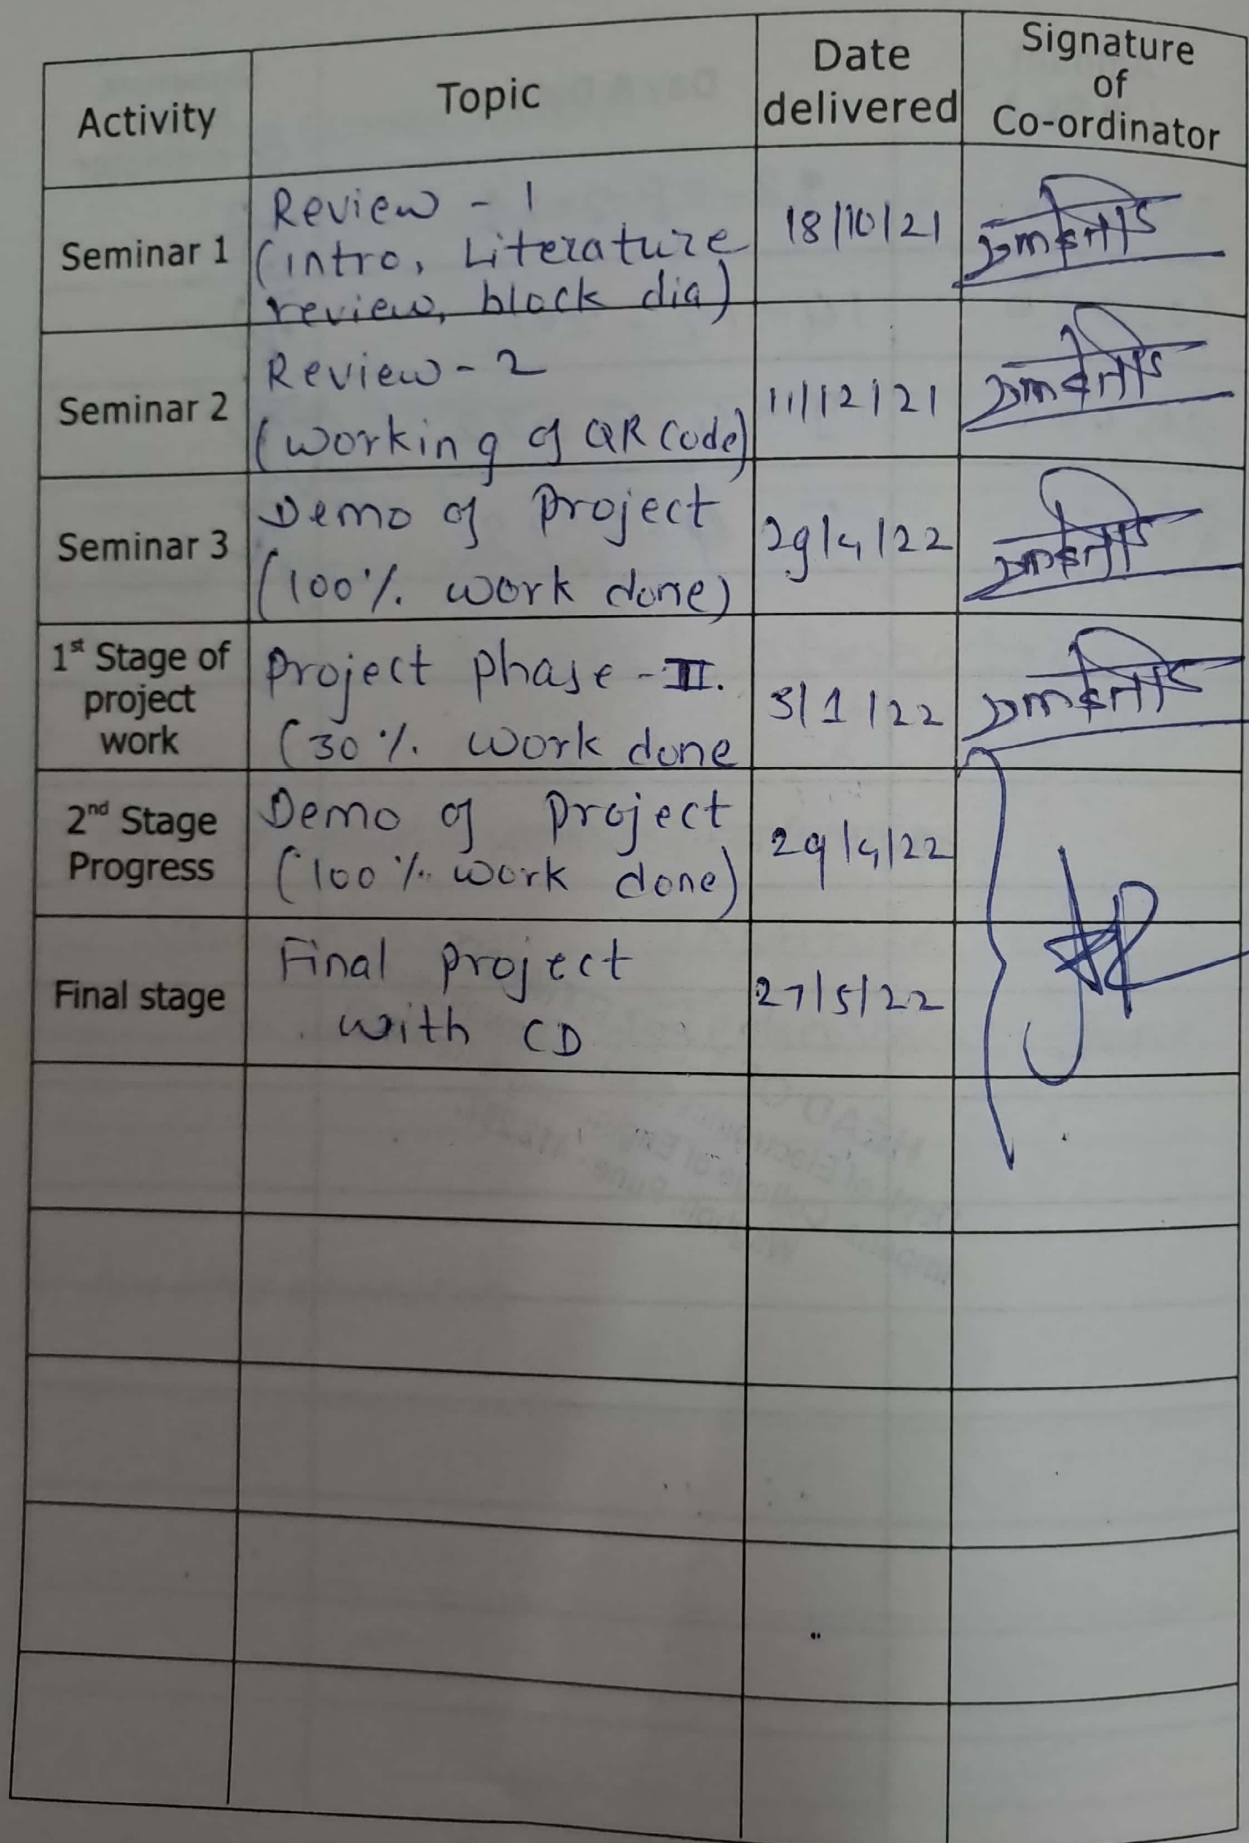 Activity
Topic
Date
delivered
Signature
of
Co-ordinator
Seminar 1
Review - 1
(intro, Literature
review, block dia)
18/10/21
Seminar 2
Review - 2
(working of QR Code)
11/12/21
Seminar 3
Demo of Project
(100% work done)
29/4/22
1st Stage of
project
work
Project phase - II.
(30% work done
3/1/22
2nd Stage
Progress
Demo of Project
(100% work done)
29/4/22
Final stage
Final project
with CD
27/5/22